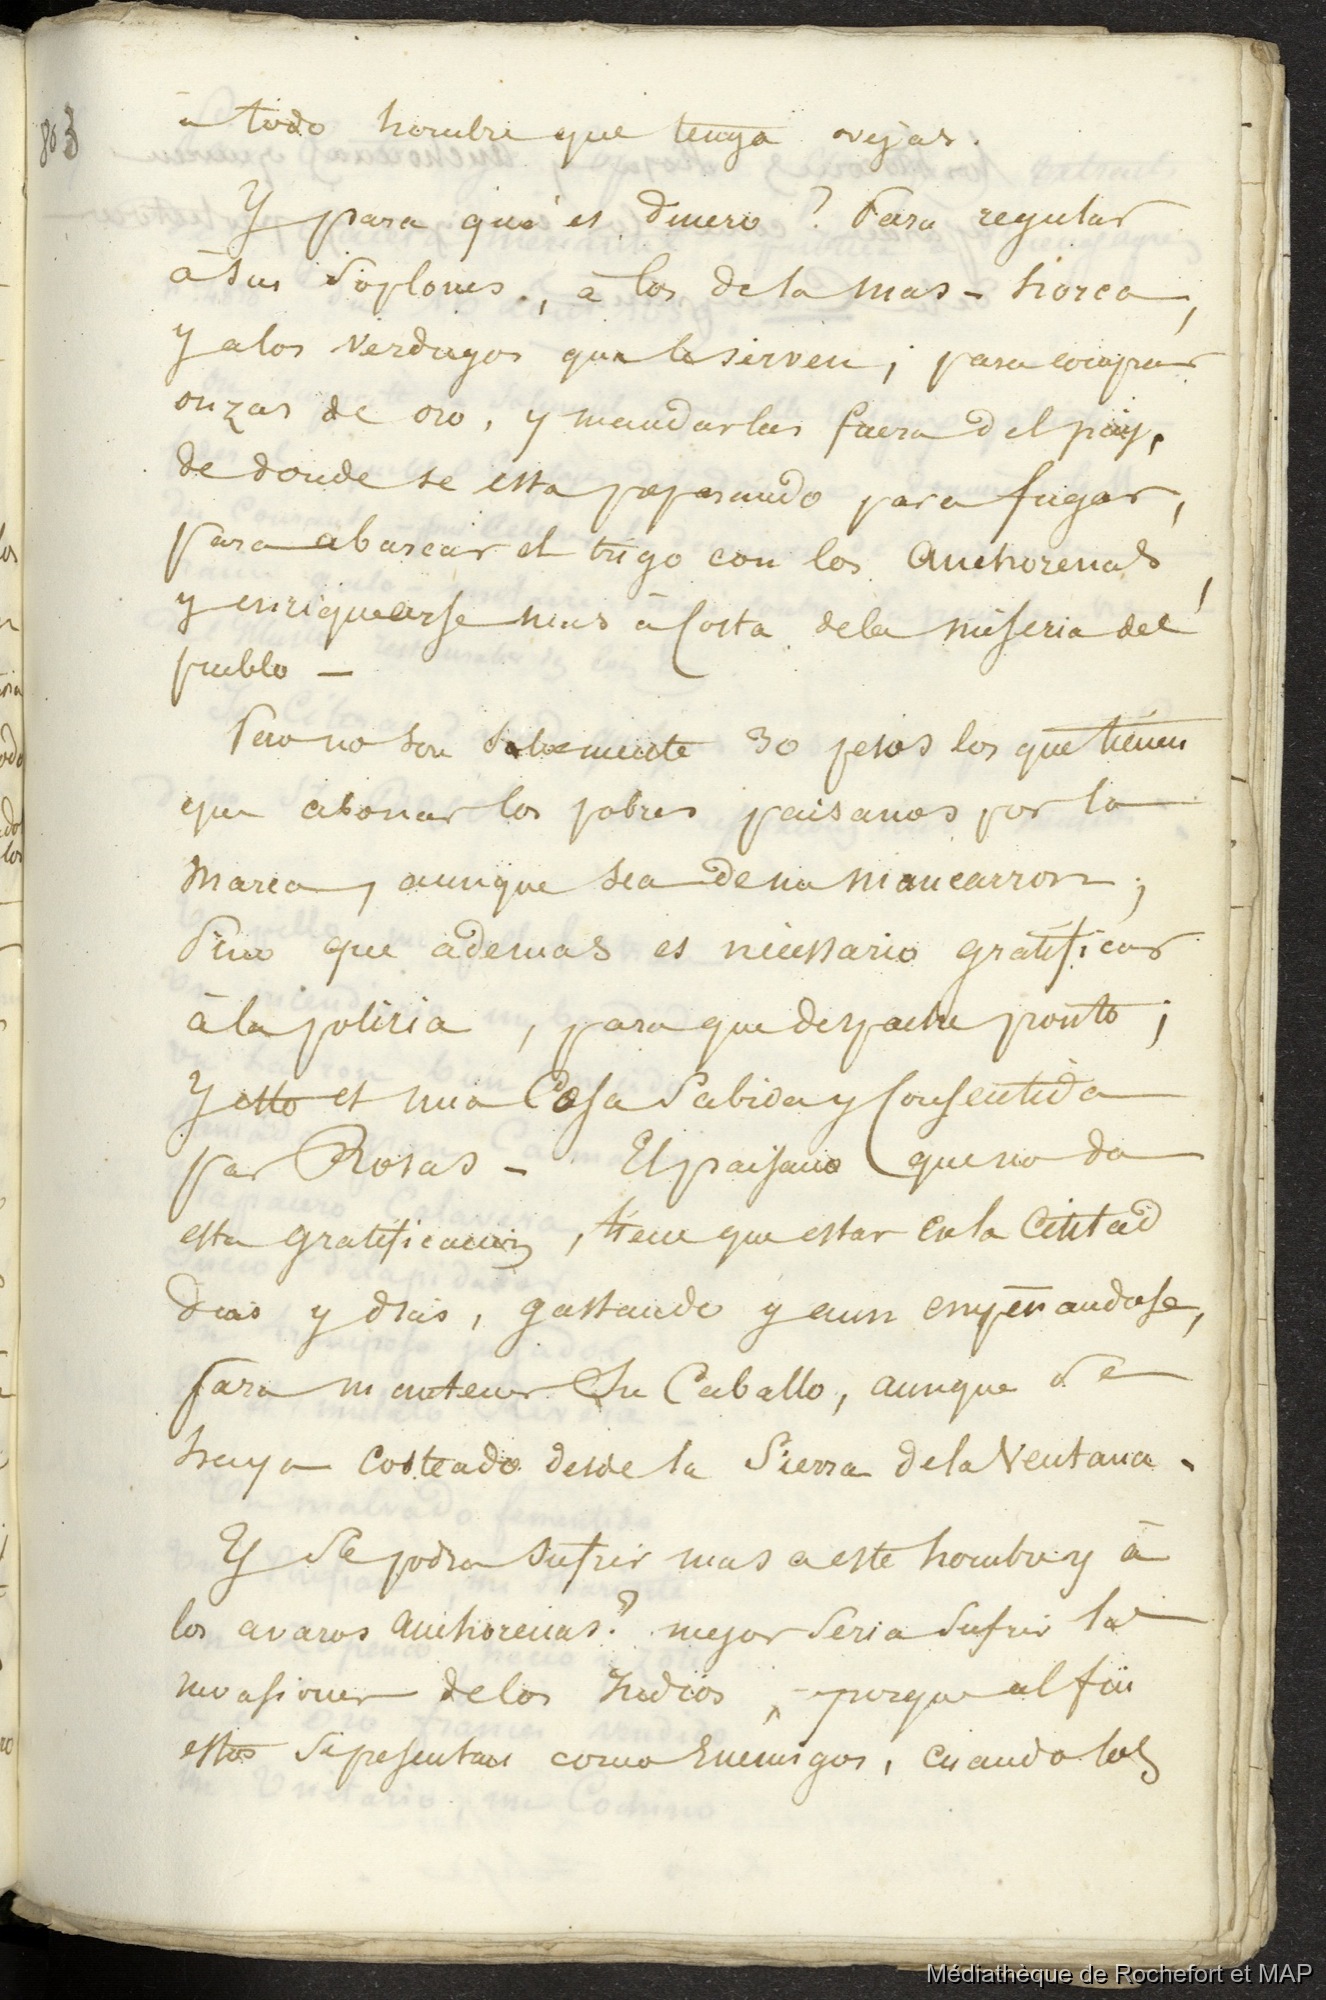 803
à todo hombre que tenga ovejas.
Y para qué es dinero? Para regular
à sus Soplones, à los de la mas-horca,
y a los Verdugos que le sirven; para comprar
onzas de oro, y mandarlas fuera del pais,
de donde se esta preparando para fugar,
para abarcar el trigo con los Anchorenas,
y enriquearse mas à Costa dela miseria del
pueblo —
Pero no son solamente 30 pesos los que tienen
que abonar los pobres paisanos por la
marca, aunque sea de un mancarron;
Sino que ademas es nicessario gratificar
à la policia, para que despache pronto;
y esto es una Cosa Sabida y Consentida
par Rosas - El paisano que no da
esta gratificacion, tiene que estar en la Ciutad
dias y dias, gastando y aun empenandose,
para mantener Su Caballo, aunque se
haya costeado desde la Sierra dela Ventana.
Y Se podra Sufrir mas a este hombre y à
los avaros Anchorenas? mejor Seria Sufrir las
invasiones delos Indios, porque al fin
estos Se presentan como Enemigos, cuando los
Médiathèque de Rochefort et MAP